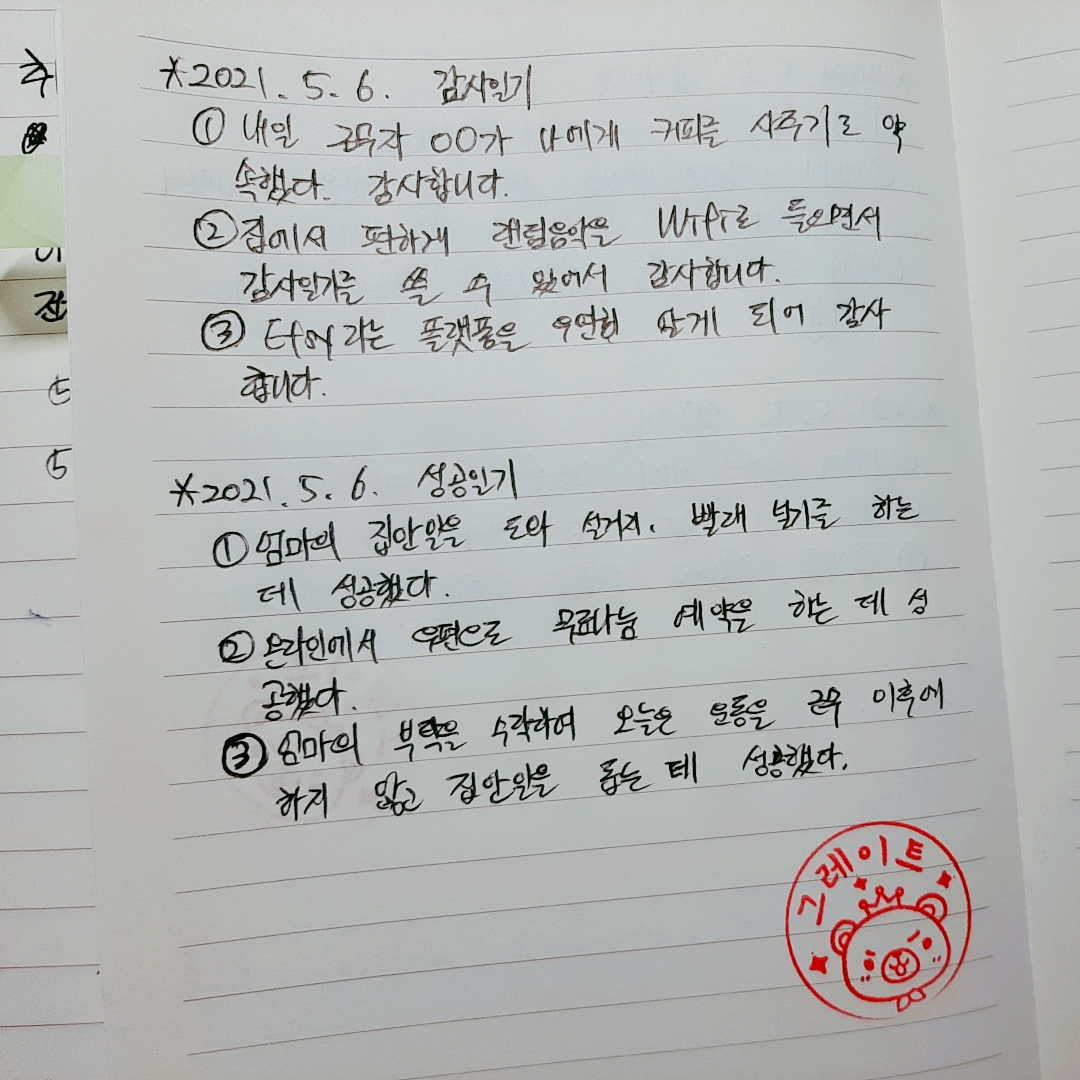 추
*2021. 5. 6. 감사일기
① 내일 근무자 OO가 나에게 커피를 사주기로 약
속했다. 감사합니다.
② 집에서 편하게 랜덤음악을 Wifi로 들으면서
감사일기를 쓸 수 있어서 감사합니다.
③ 라는 플랫폼을 우연히 알게 되어 감사
합니다.
*2021. 5. 6. 성공일기
① 엄마의 집안일을 도와 설거지, 빨래 널기를 하는
데 성공했다.
② 온라인에서 우편으로 무료나눔 예약을 하는 데 성
공했다.
③ 엄마의 부탁을 수락하여 오늘은 운동을 근무 이후에
하지 않고 집안일을 돕는 데 성공했다.
그레이트
⑤
⑤